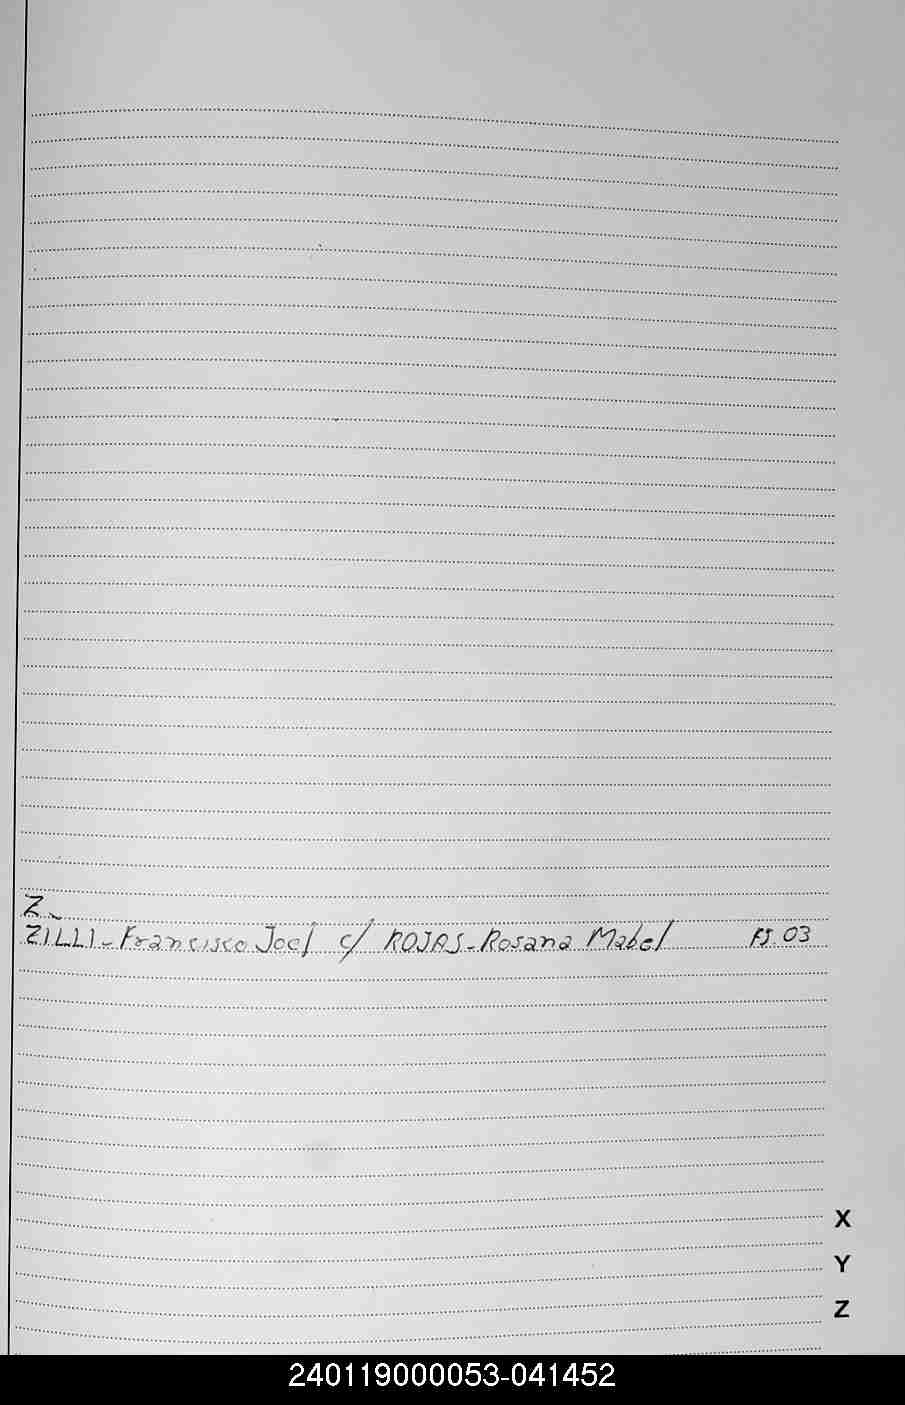 Z
ZILLI - Francisco Joel c/ ROJAS - Rosana Mabel FJ. 03
X
Y
Z
240119000053-041452